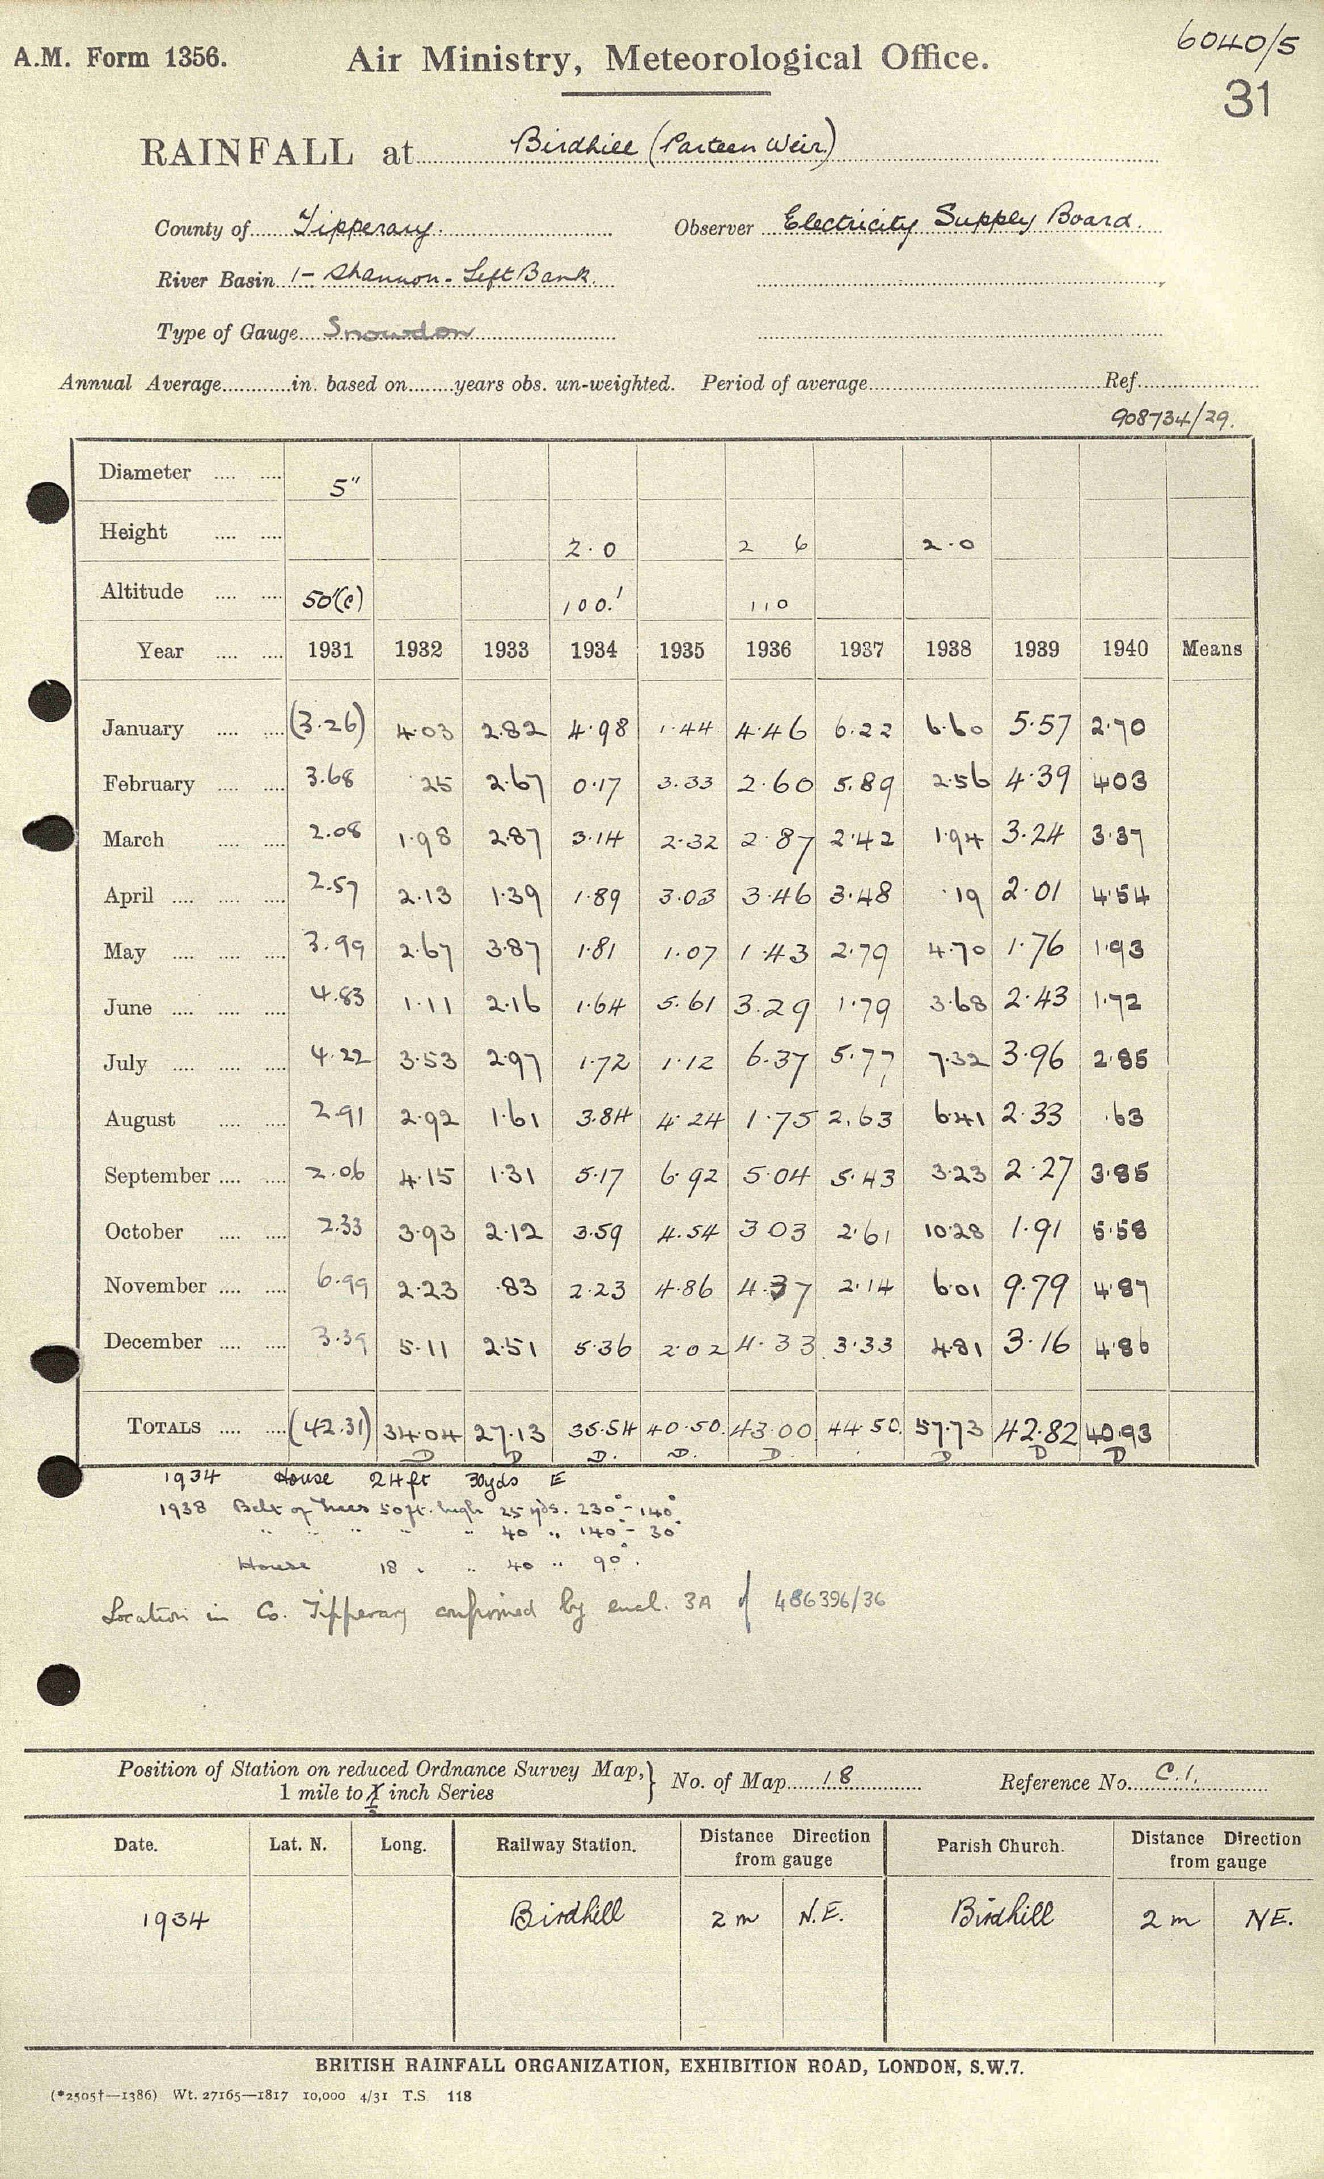 6040/5
A.M. Form 1356. Air Ministry, Meteorological Office.
31
RAINFALL at Birdhill (Parteen Weir)
County of Tipperary. Observer Electricity Supply Board.
River Basin 1- Shannon - Left Bank.
Type of Gauge Snowdon
Annual Average in. based on years obs. un-weighted. Period of average Ref.
908734/29.
Diameter 5"
Height 2.0 2 6 2.0
Altitude 50'(c) 100.' 110
Year 1931 1932 1933 1934 1935 1936 1937 1938 1939 1940 Means
January (3.26) 4.03 2.82 4.98 1.44 4.46 6.22 6.60 5.57 2.70
February 3.68 25 2.67 0.17 3.33 2.60 5.89 2.56 4.39 403
March 2.08 1.98 2.87 3.14 2.32 2.87 2.42 1.94 3.24 3.37
April 2.57 2.13 1.39 1.89 3.03 3.46 3.48 .19 2.01 4.54
May 3.99 2.67 3.87 1.81 1.07 1.43 2.79 4.70 1.76 1.93
June 4.83 1.11 2.16 1.64 5.61 3.29 1.79 3.68 2.43 1.72
July 4.22 3.53 2.97 1.72 1.12 6.37 5.77 7.32 3.96 2.85
August 2.91 2.92 1.61 3.84 4.24 1.75 2.63 6.41 2.33 .63
September 2.06 4.15 1.31 5.17 6.92 5.04 5.43 3.23 2.27 3.85
October 2.33 3.93 2.12 3.59 4.54 3 03 2.61 10.28 1.91 5.58
November 6.99 2.23 .83 2.23 4.86 4.37 2.14 6.01 9.79 4.87
December 3.39 5.11 2.51 5.36 2.02 4.33 3.33 4.81 3.16 4.86
TOTALS (42.31) 34.04 27.13 35.54 40.50. 43.00 44.50. 57.73 42.82 40.93
D D D. D. D. D D D
1934 House 24 ft 30yds E
1938 Belt of trees 50ft. high 25 yds. 230° - 140°
" " " " " 40 " 140° - 30°
House 18 " " 40 " 90°.
Location in Co. Tipperary confirmed by encl. 3A of 486396/36
Position of Station on reduced Ordnance Survey Map,
1 mile to 1 inch Series
No. of Map 18 Reference No. C.1.
Date. Lat. N. Long. Railway Station. Distance Direction from gauge Parish Church. Distance Direction from gauge
1934 Birdhill 2 m N.E. Birdhill 2 m NE.
BRITISH RAINFALL ORGANIZATION, EXHIBITION ROAD, LONDON, S.W.7.
(*2505†—1386) Wt. 27165—1817 10,000 4/31 T.S 118